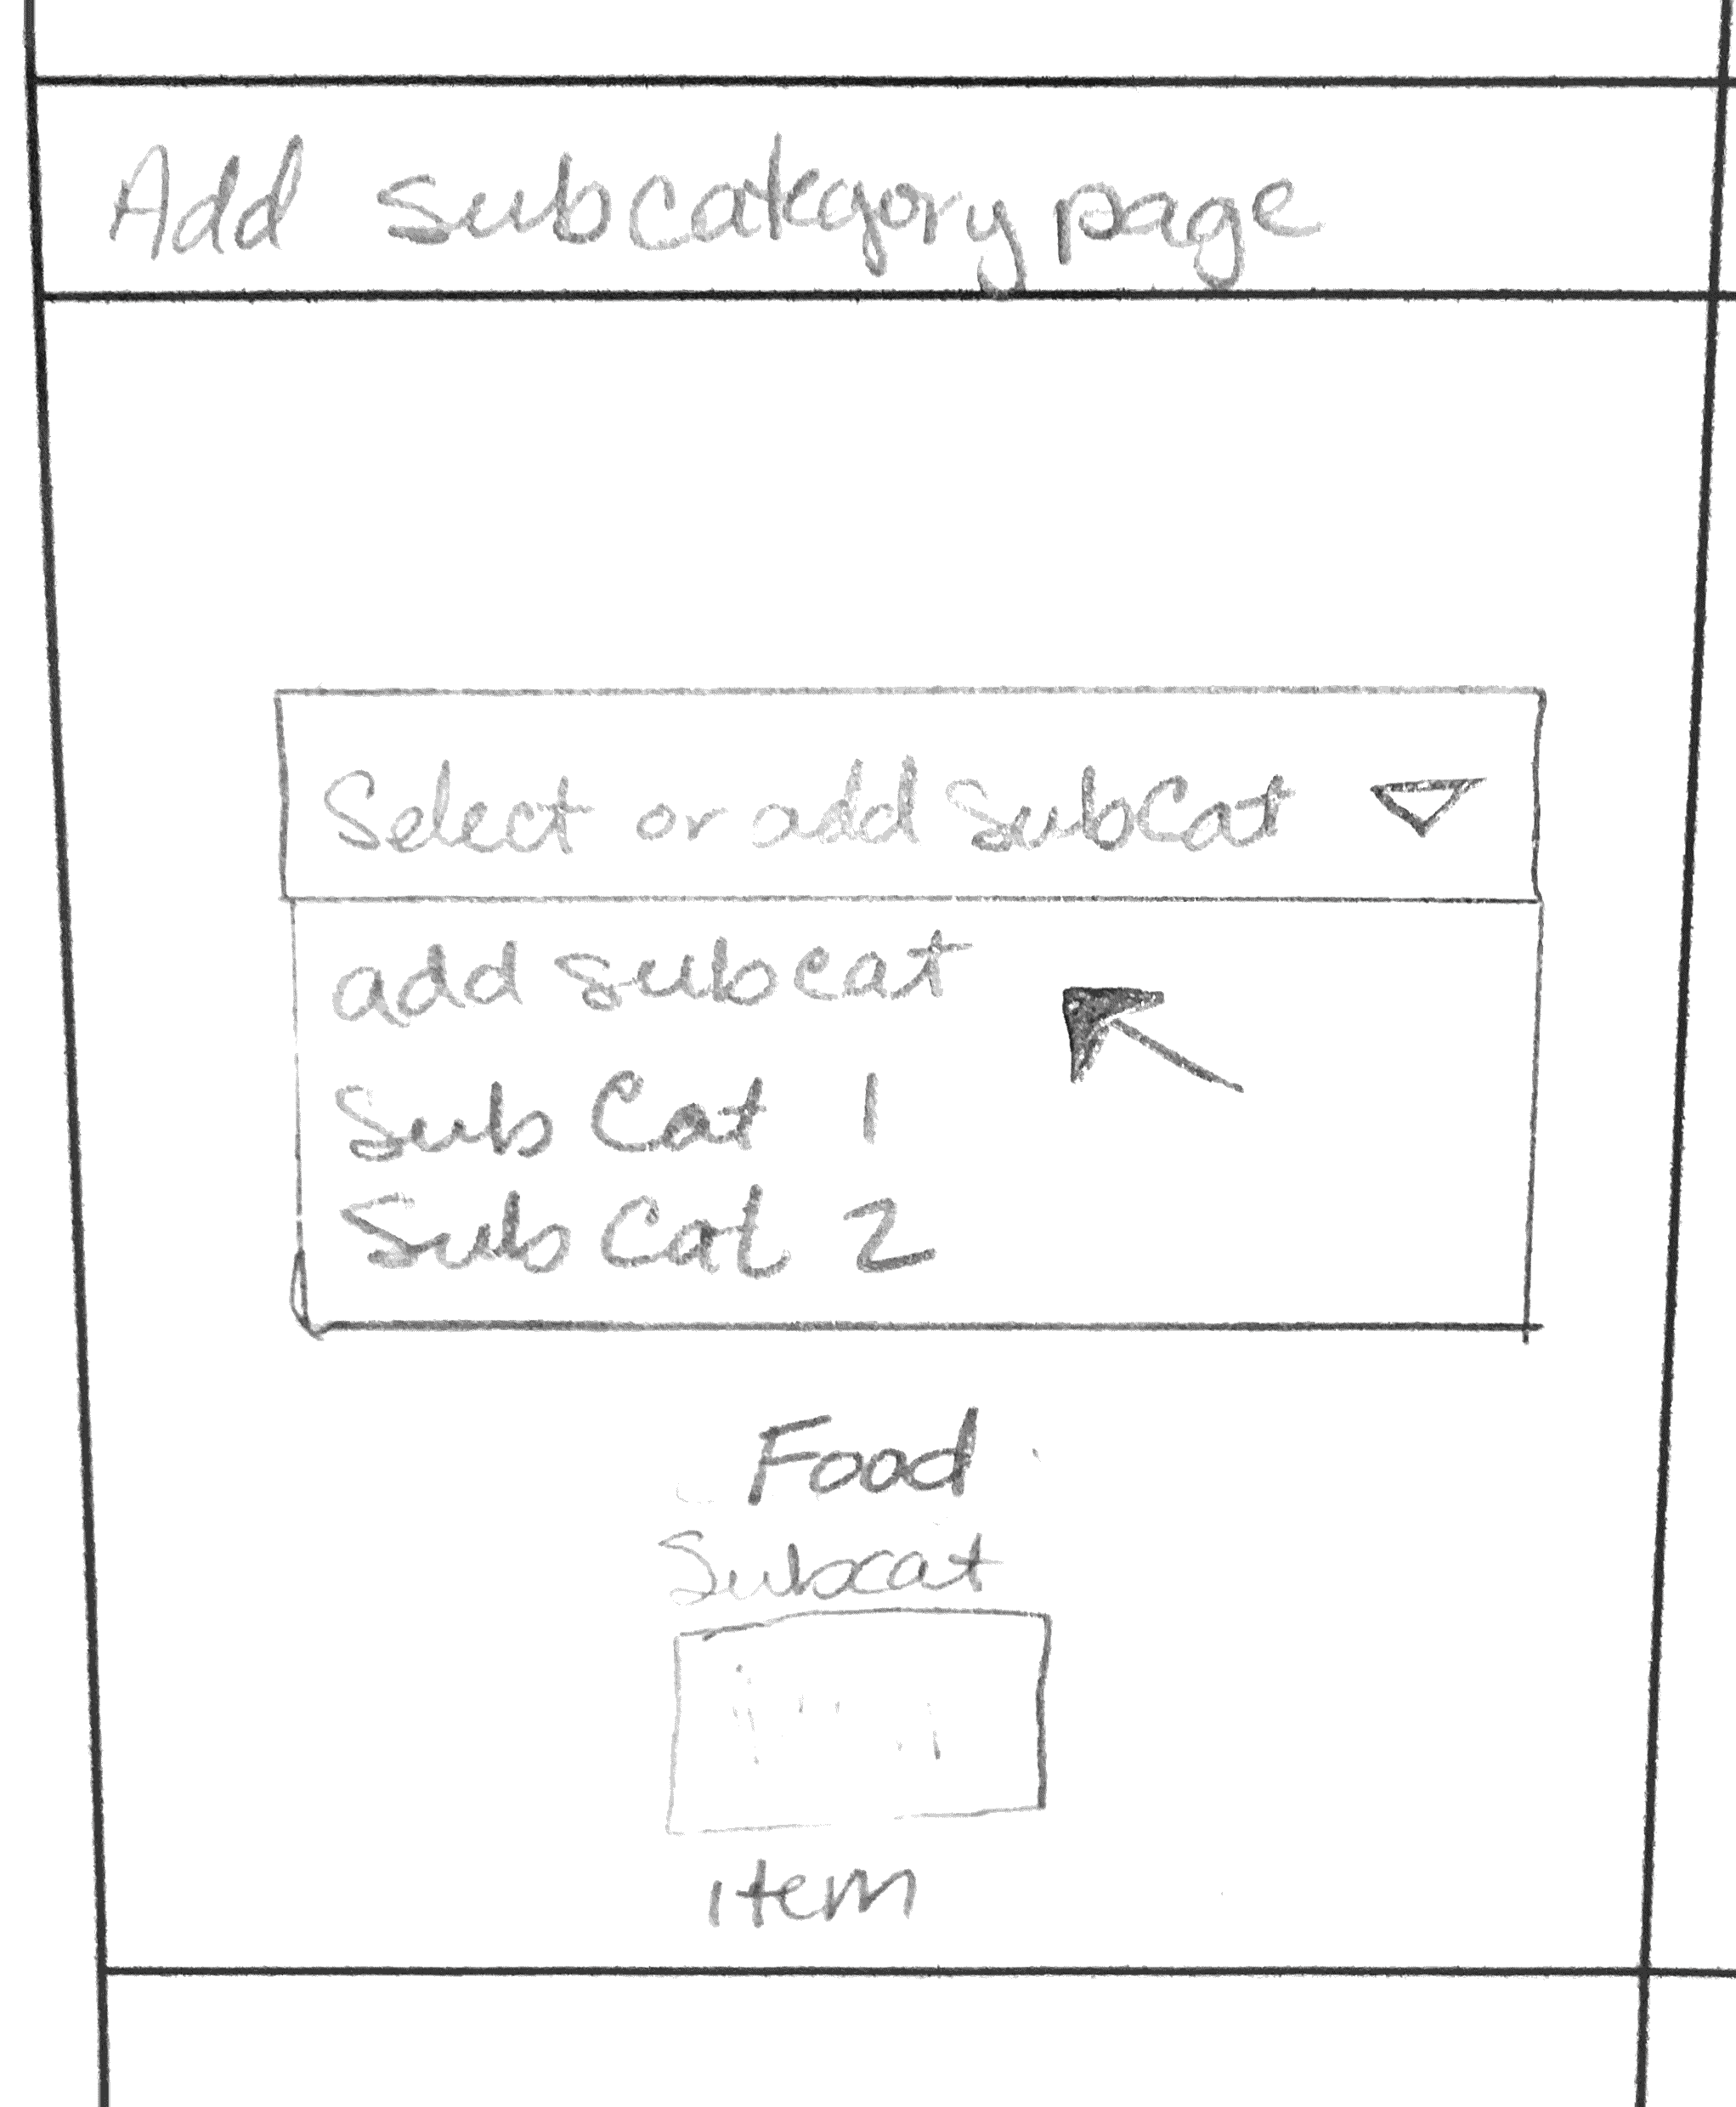 Add subcategory page
Select or add SubCat
add subcat
Sub Cat 1
Sub Cat 2
Food
Subcat
item